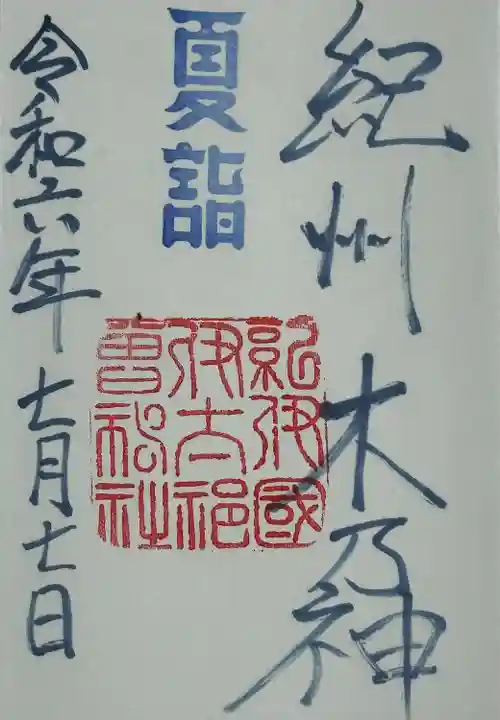 紀州 木乃神
夏詣
紀伊國
伊太祁
曽神社
令和六年 七月七日